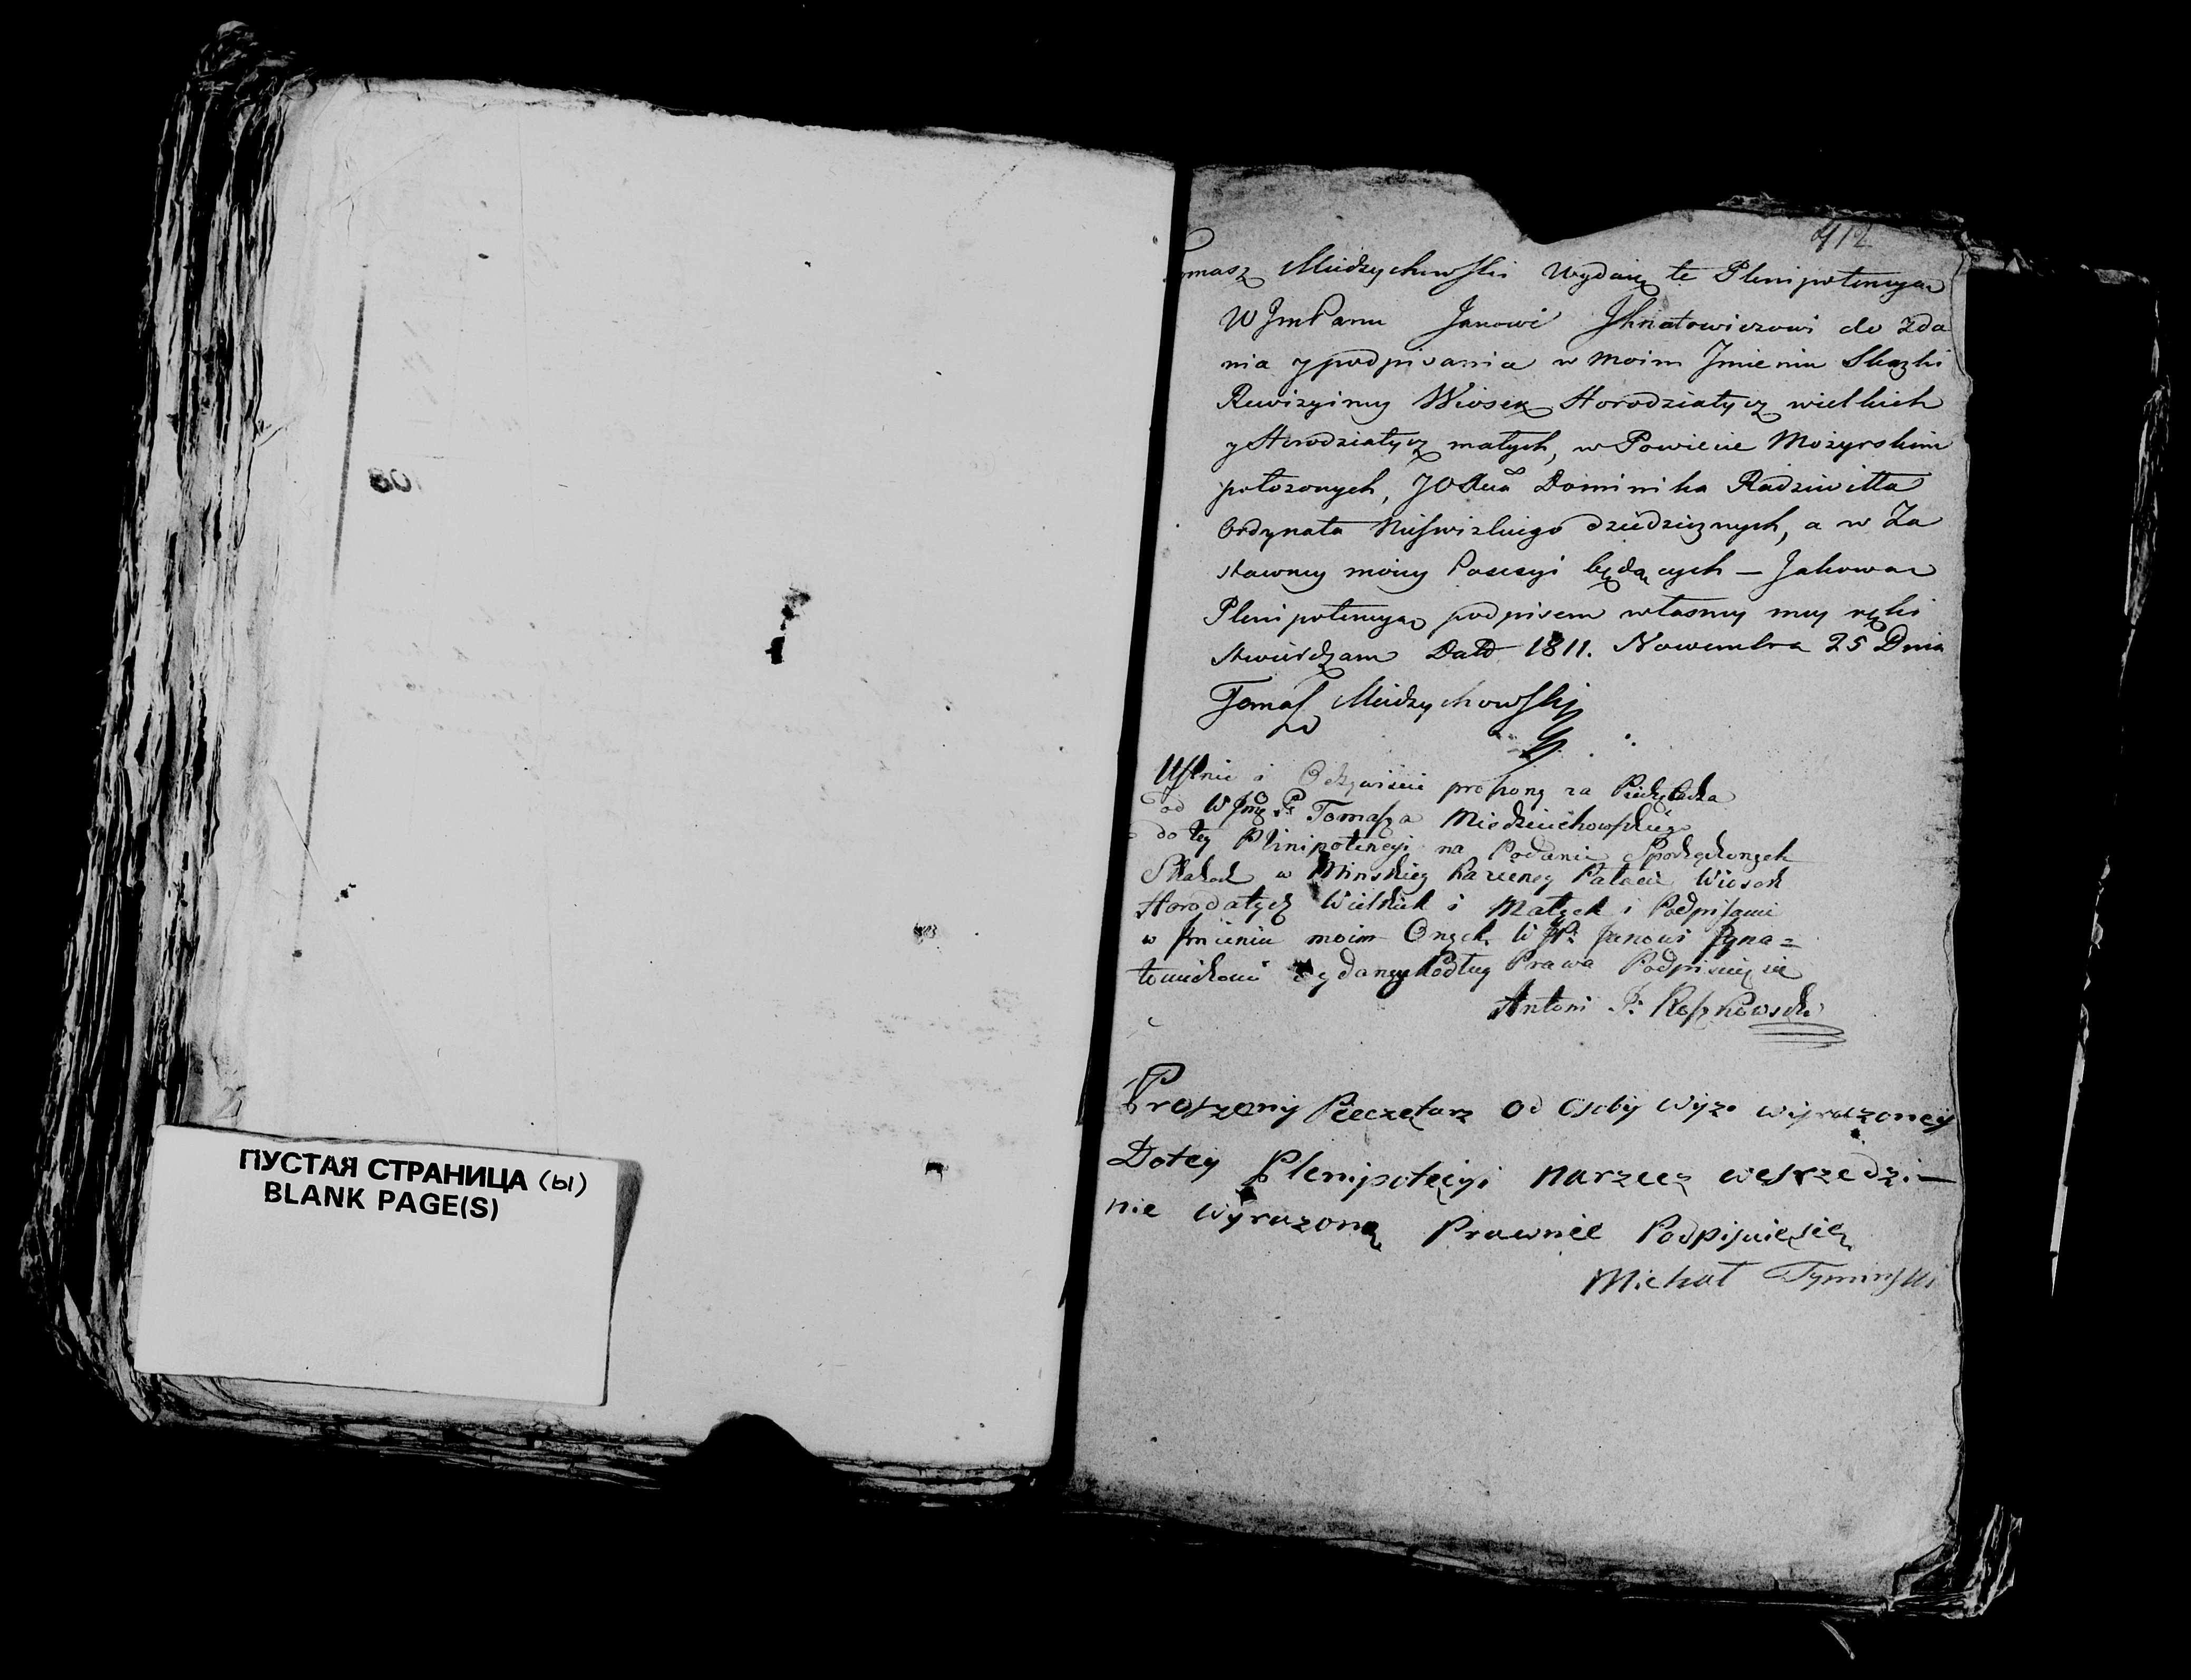 ПУСТАЯ СТРАНИЦА (Ы)
BLANK PAGE(S)
412
Tomasz Miedzychowski Wydaię tę Plenipotencyą
W JmPanu Janowi Jhnatowiczowi do zda
nia y podpisania w moim Jmieniu Skazki
Rewizyiney Wiosek Horodziatycz wielkich
y Horodziatycz małych, w Powiecie Mozyrskim
położonych, JO Xcia Dominika Radziwiłła
Ordynata Nieswizkiego dziedzicznych, a w Za
stawney moiey Possesyi będących — Jakową
Plenipotencyą podpisem własney mey ręki
stwierdzam Datt 1811. Nowembra 25 Dnia
Tomasz Miedzychowski
Ustnie i Oczewiscie proszony za Pieczętarza
od W Jmę Pa Tomasza Miedziechowskiego
do tey Plinipotencyi na Podanie Sporządzonych
Skazek w Minskiey Kazenney Pałacie Wiosek
Horodatycz Wielkich i Małych i Podpisanie
w Jmieniu moim Onych W JP: Janowi Jgna=
towiczowi wydaney Podług Prawa Podpisuię się
Antoni P: Roszkowski
Proszony Pieczętarz od Osoby wyzo wyrazoney
Dotey Plenipotęcyi narzecz wesrzedzi—
nie wyrazoną Prawnie Podpisuięsię
Michał Tyminski